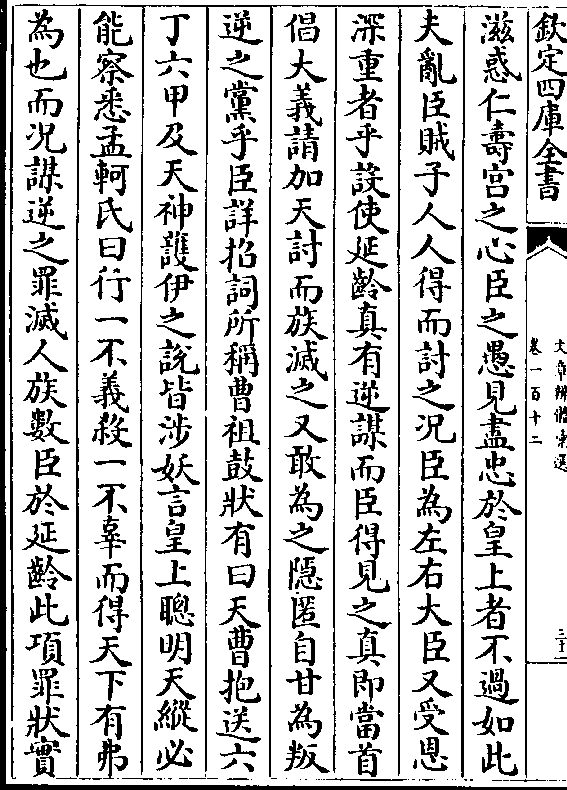 欽定四庫全書
文章辨體彙選
卷一百十二
三十二
滋惑仁壽宮之心臣之愚見盡忠於皇上者不過如此
夫亂臣賊子人人得而討之况臣為左右大臣又受恩
深重者乎設使延齡真有逆謀而臣得見之真即當首
倡大義請加天討而族滅之又敢為之隱匿自甘為叛
逆之黨乎臣詳招詞所稱曹祖鼓狀有曰天曹抱送六
丁六甲及天神護伊之說皆涉妖言皇上聰明天縱必
能察悉孟軻氏曰行一不義殺一不辜而得天下有弗
為也而况謀逆之罪滅人族數臣於延齡此項罪狀實